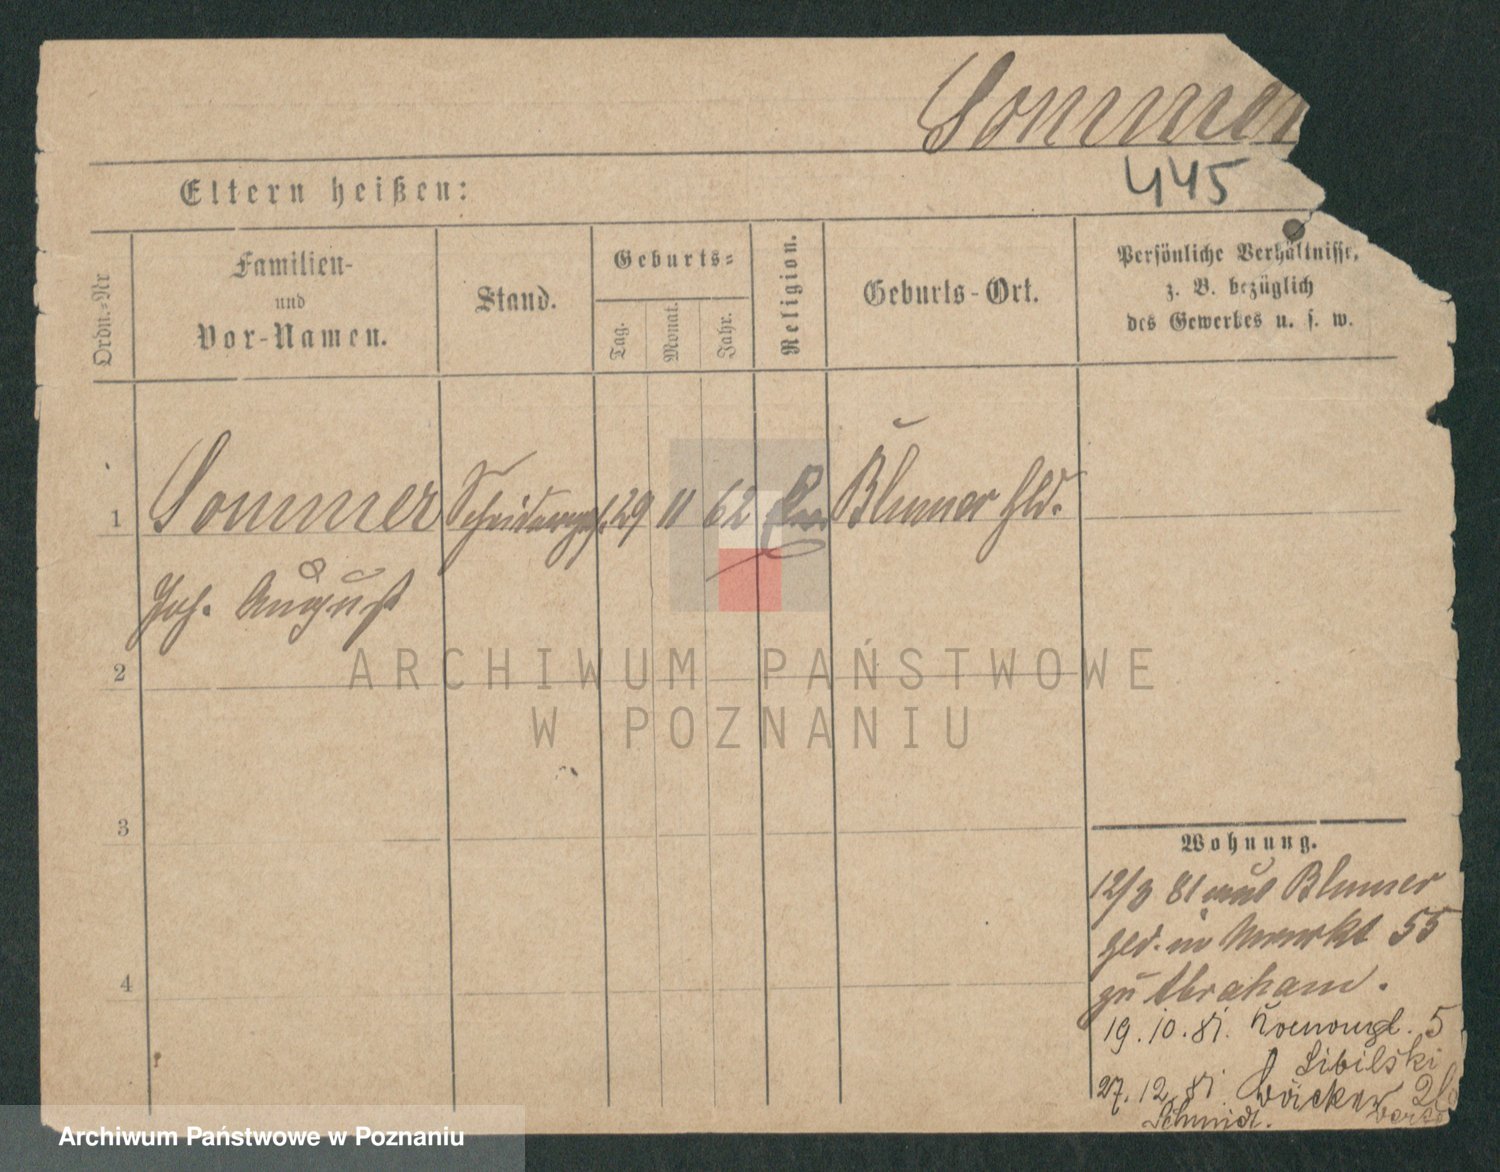 Sommer
445
Eltern heißen:
Ordn.-Nr
Familien-
und
Vor-Namen.
Stand.
Geburts-
Tag.
Monat.
Jahr.
Religion.
Geburts-Ort.
Persönliche Verhältnisse,
z. B. bezüglich
des Gewerbes u. s. w.
1 Sommer 29 11 62 Blumer Hld.
Joh. August
2
3
4
ARCHIWUM PAŃSTWOWE
W POZNANIU
Wohnung.
12/3 81 aus Blumer
Hld. in Markt 55
zu Abraham.
19.10.81. 5
Sibilski
27.12.81 Bäcker
Schmidt.
Archiwum Państwowe w Poznaniu